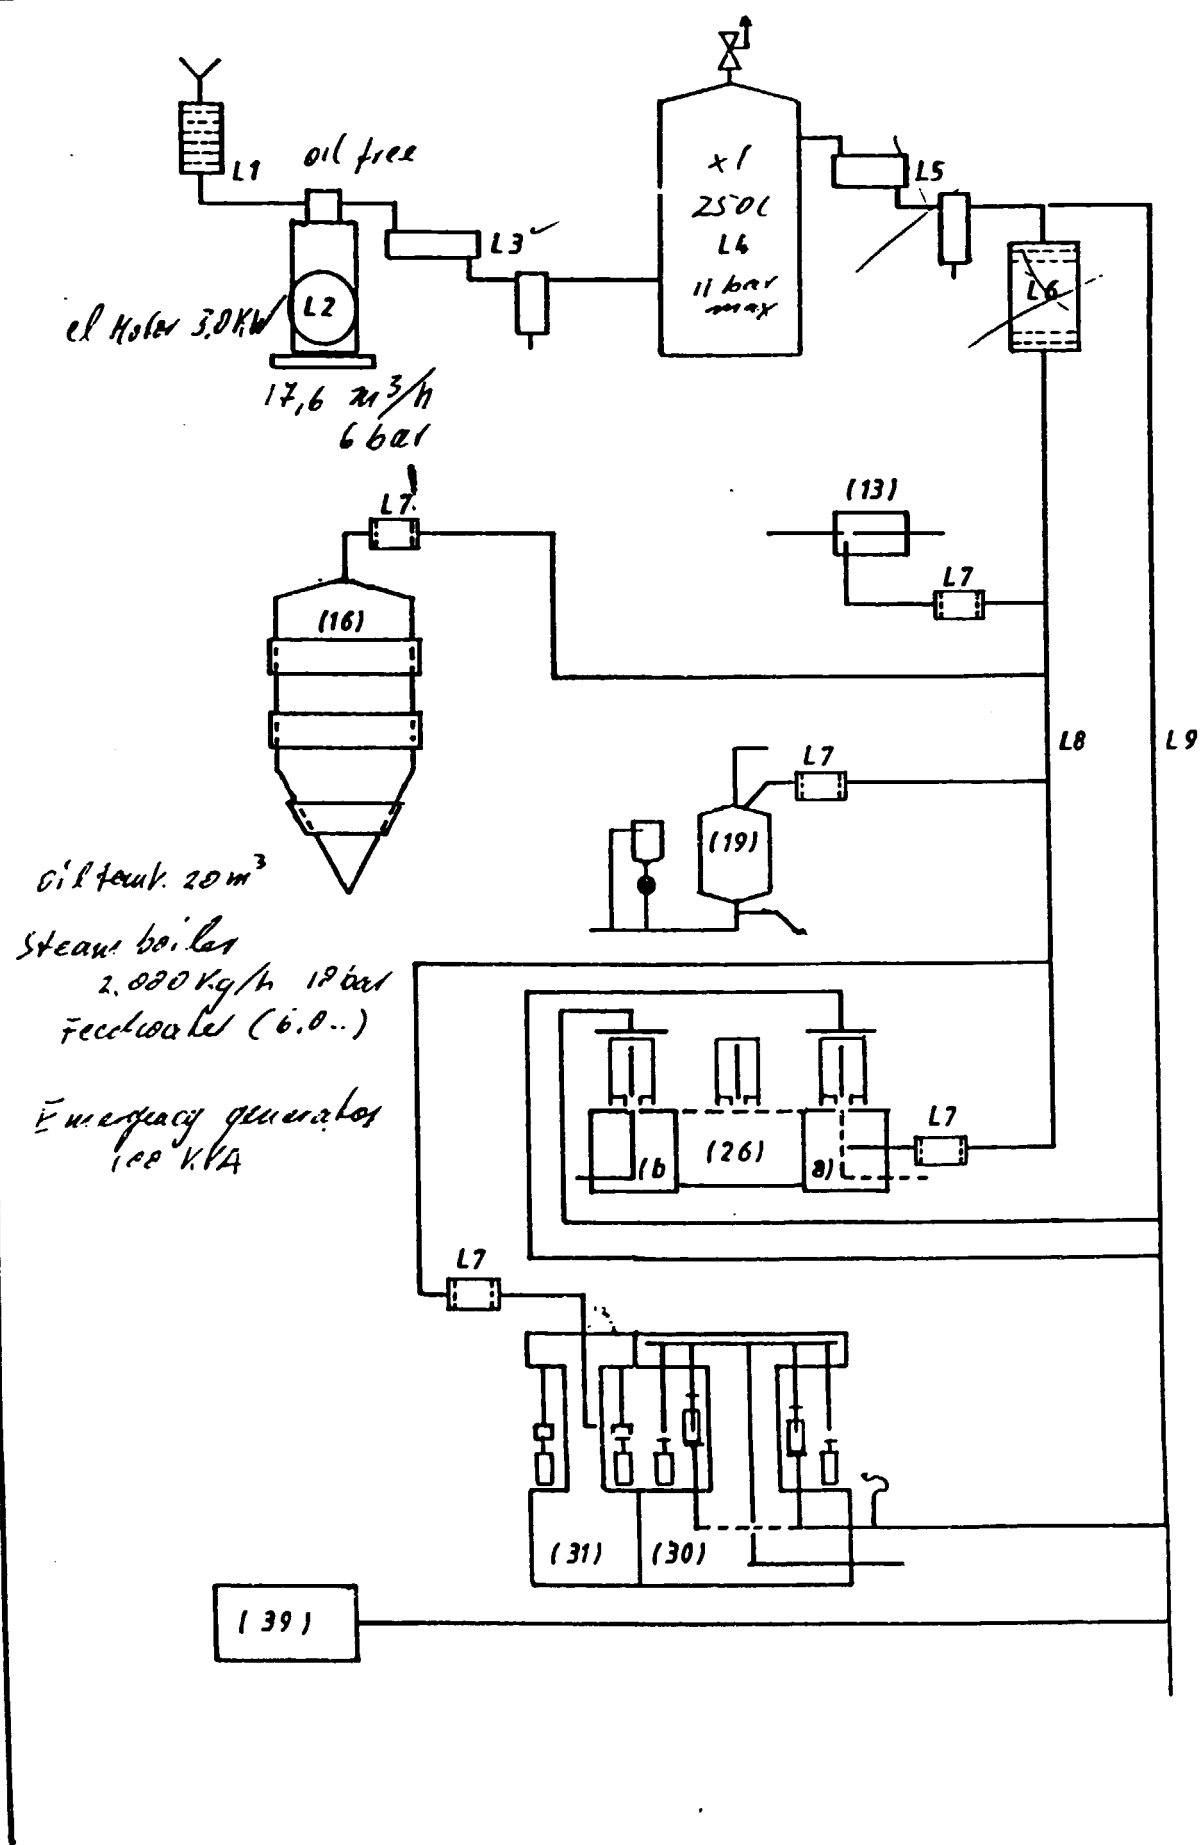 L1
oil free
L3
L2
el Motor 3,0 KW
17,6 m³/h
6 bar
x 1
250 l
L4
11 bar
max
L5
L6
L7
(13)
L7
(16)
L8
L9
L7
(19)
oil tank. 20 m³
Steam boiler
2.000 Kg/h
bar
Feedwater (6.0..)
Emergency generator
KVA
(b
(26)
a)
L7
L7
(31)
(30)
(39)